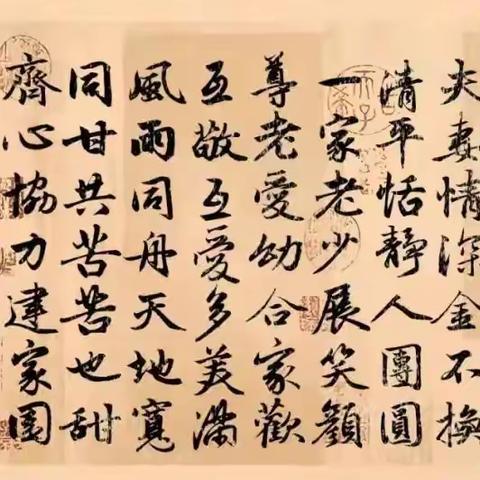 夫妻情深金不換
清平恬靜人團圓
一家老少展笑顏
尊老愛幼合家歡
互敬互愛多美滿
風雨同舟天地寬
同甘共苦苦也甜
齊心協力建家園